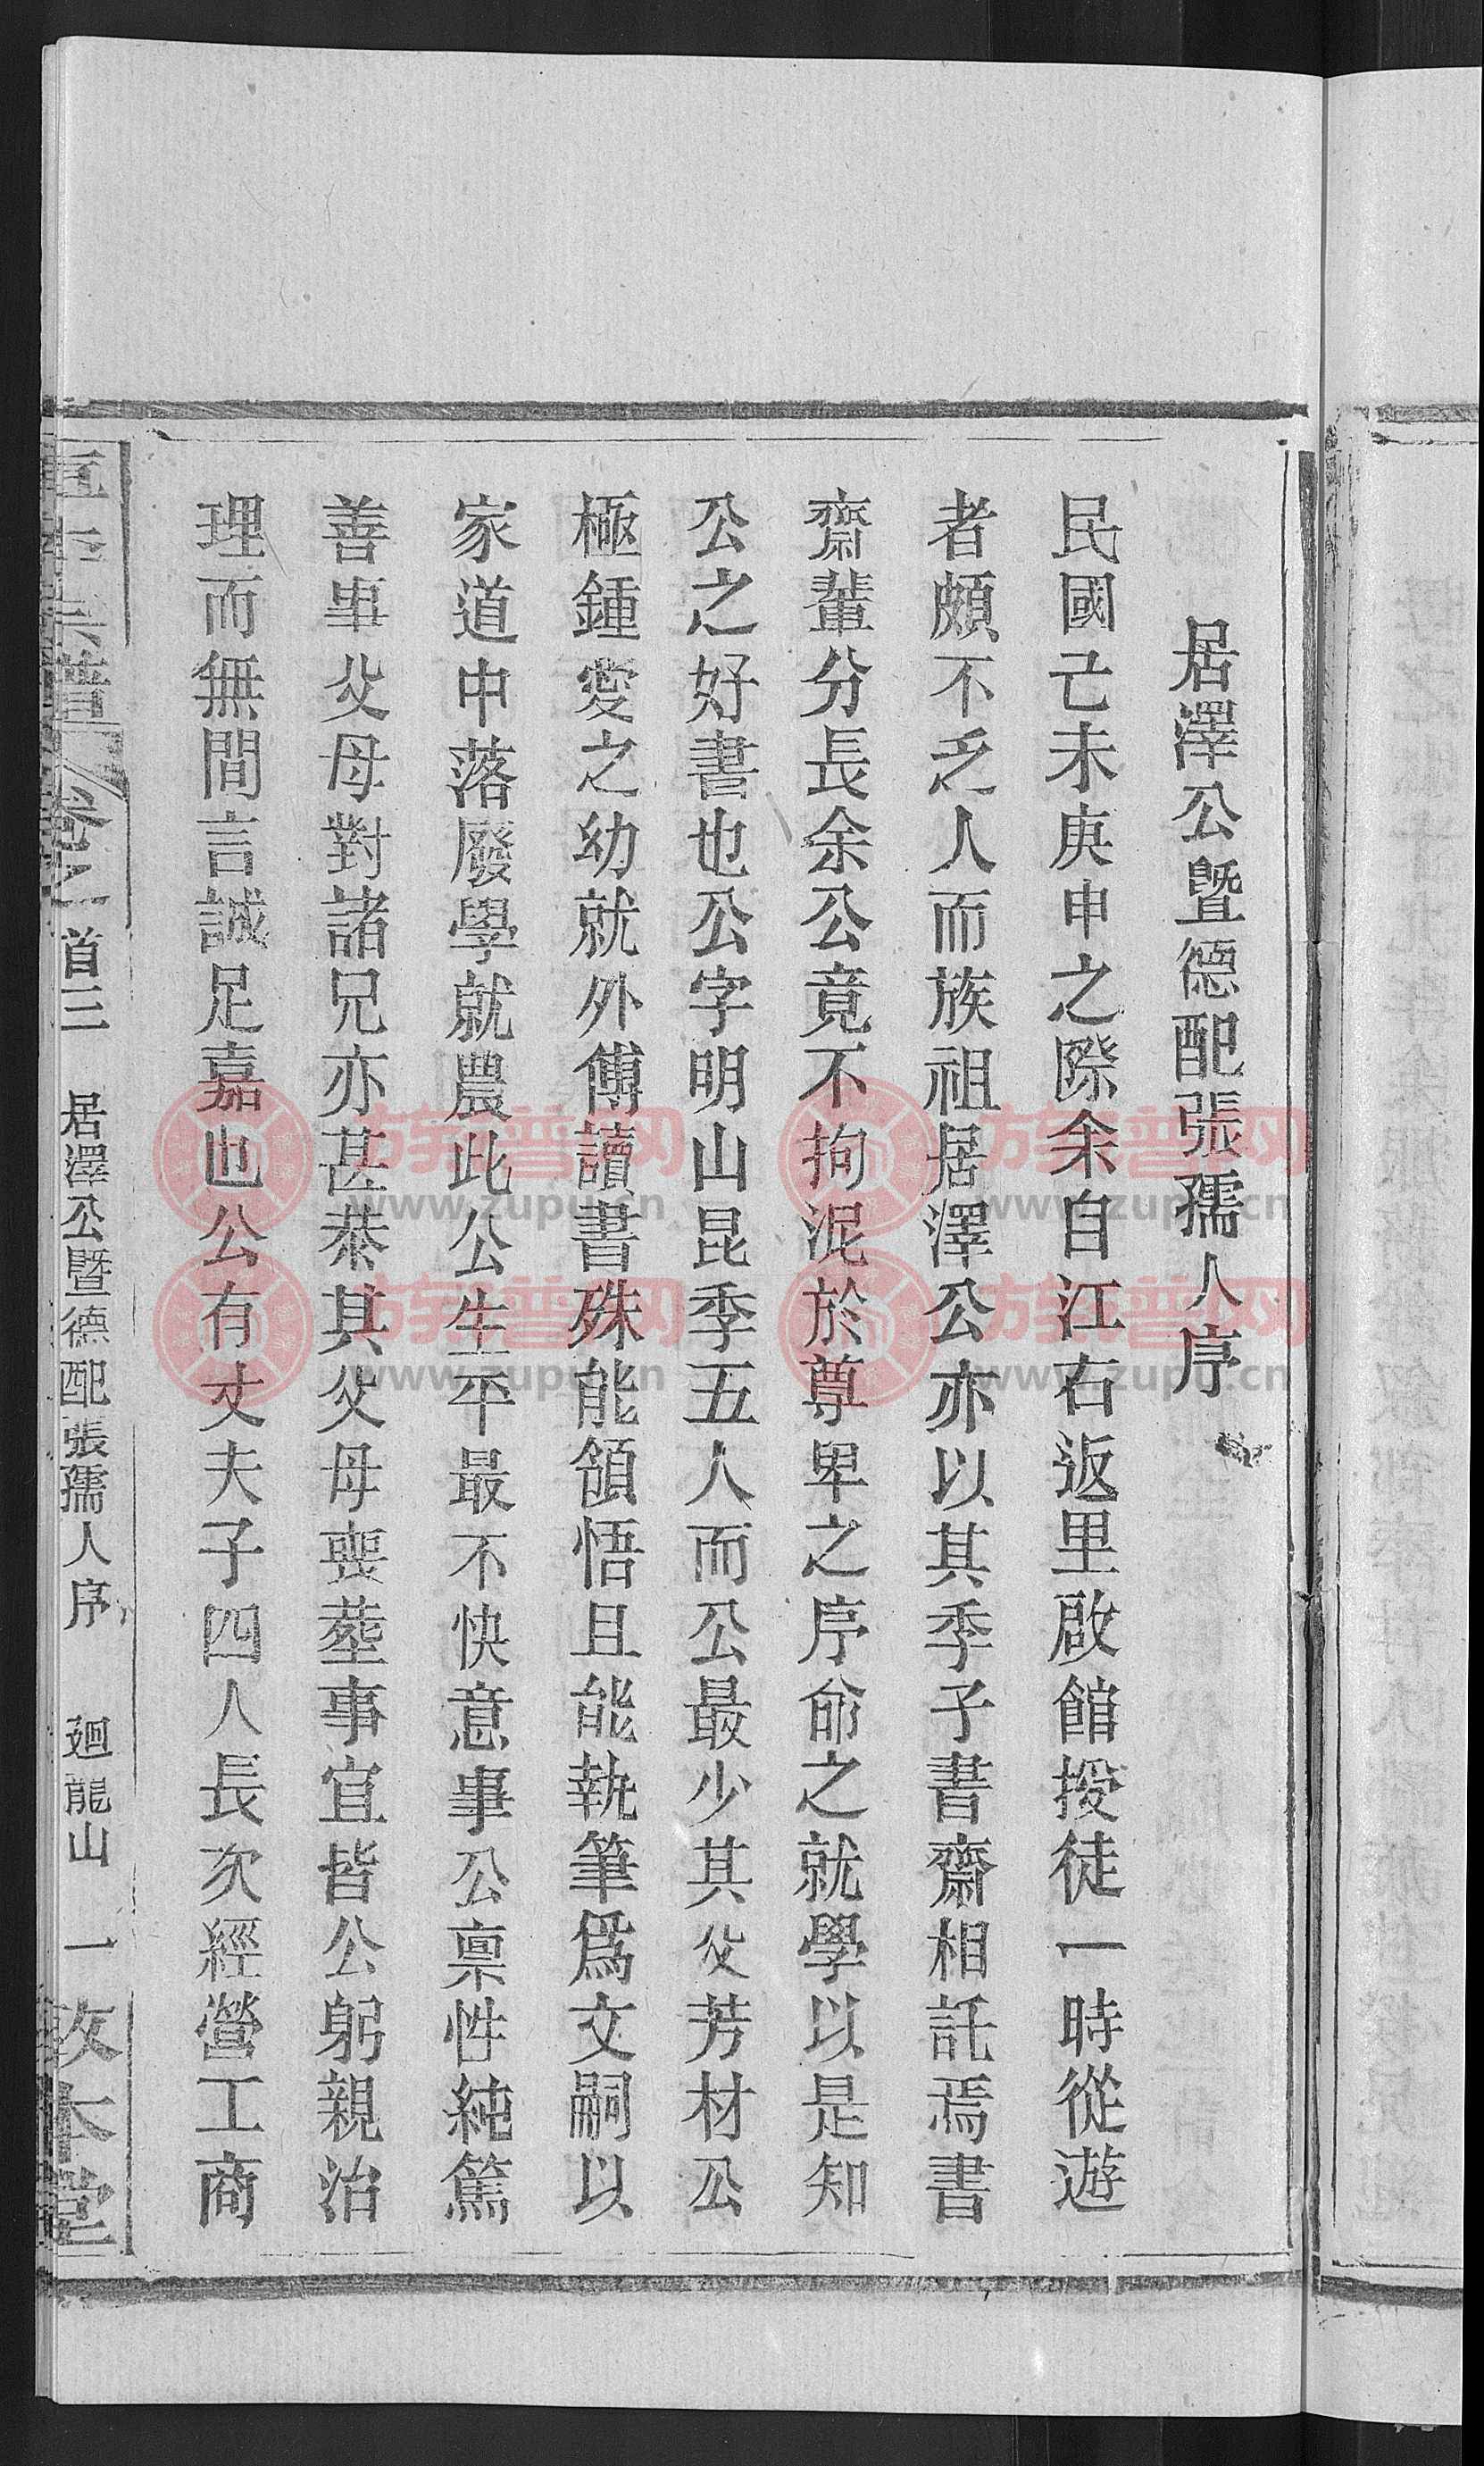 居澤公暨德配張孺人序
民國己未庚申之際余自江右返里啟館授徒一時從遊
者頗不乏人而族祖居澤公亦以其季子書齋相託焉書
齋輩分長余公竟不拘泥於尊卑之序命之就學以是知
公之好書也公字明山昆季五人而公最少其父芳材公
極鍾愛之幼就外傅讀書殊能領悟且能執筆爲文嗣以
家道中落廢學就農此公生平最不快意事公稟性純篤
善事父母對諸兄亦甚恭其父母喪葬事宜皆公躬親治
理而無間言誠足嘉也公有丈夫子四人長次經營工商
宗譜
卷之首三
居澤公暨德配張孺人序
廻龍山
一
敦本堂
故乡谱网
www.zupu.cn